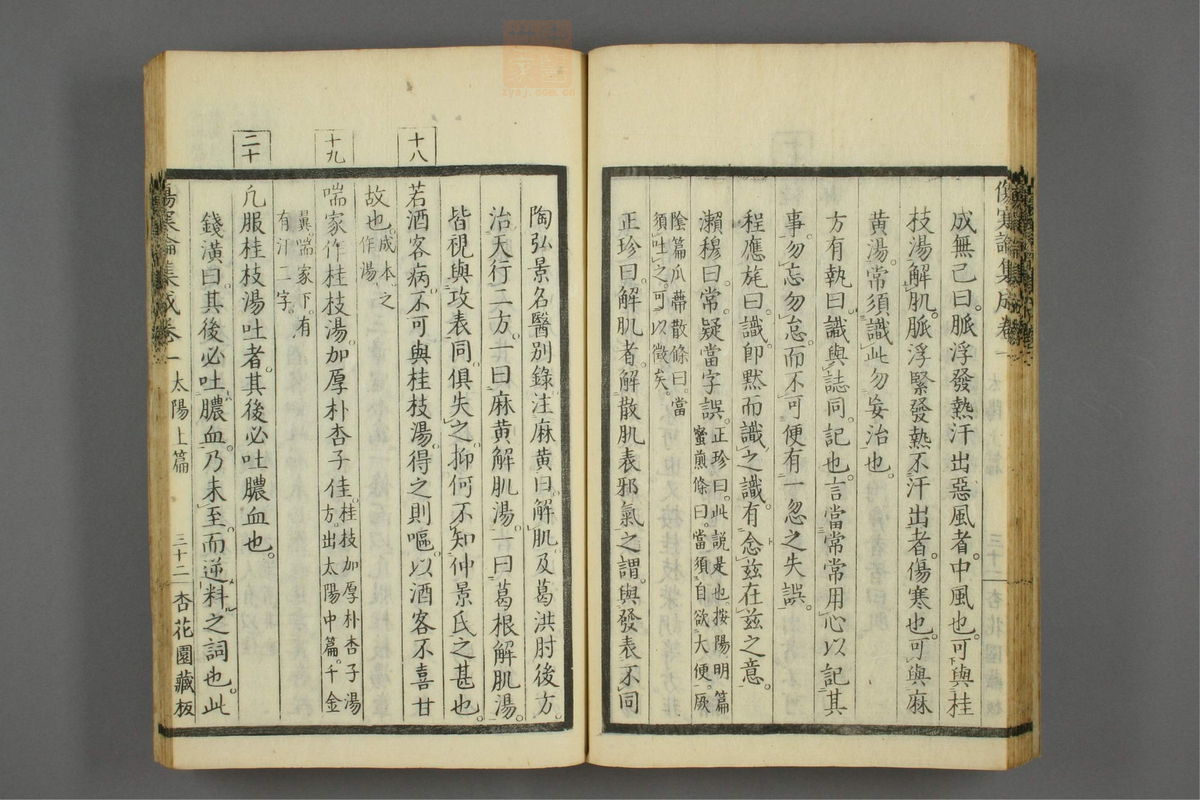 成無己曰。脈浮發熱汗出惡風者。中風也。可與桂
枝湯解肌。脈浮緊發熱不汗出者。傷寒也。可與麻
黄湯。常須識此勿妄治也。
方有執曰。識與誌同。記也。言當常常用心以記其
事。勿忘勿怠。而不可便有一忽之失誤。
程應旄曰。識卽默而識之識。有念茲在茲之意。
瀨穆曰。常疑當字誤。正珍曰。此説是也按陽明篇
蜜煎條曰。當須自欲大便。厥
陰篇瓜蔕散條曰。當
須吐之。可以徵矣。
正珍曰。解肌者。解散肌表邪氣之謂。與發表不同
陶弘景名醫別錄注麻黄曰。解肌及葛洪肘後方。
治天行二方。一曰麻黄解肌湯。一曰葛根解肌湯。
皆視與攻表同。俱失之。抑何不知仲景氏之甚也。
十八
若酒客病。不可與桂枝湯。得之則嘔。以酒客不喜甘
故也。成本。之
作湯。
十九
喘家作桂枝湯。加厚朴杏子佳。桂枝加厚朴杏子湯
方。出太陽中篇。千金
翼喘家下。有
有汁二字。
二十
凢服桂枝湯吐者。其後必吐膿血也。
錢潢曰。其後必吐膿血。乃未至而逆料之詞也。此
傷寒論集成卷一
太陽上篇
三十二
杏花園藏板
傷寒論集成卷一